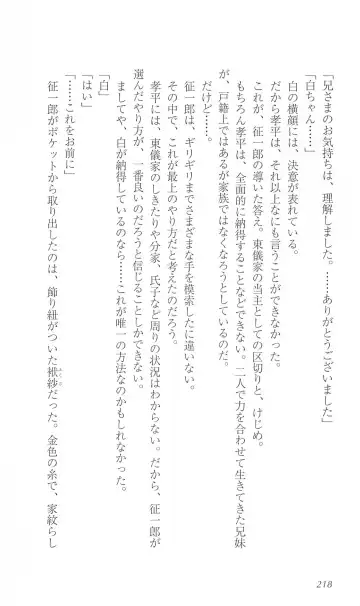 「兄さまのお気持ちは、理解しました。……ありがとうございました」
「白ちゃん……」
白の横顔には、決意が表れている。
だから孝平は、それ以上なにも言うことができなかった。
これが、征一郎の導いた答え。東儀家の当主としての区切りと、けじめ。
もちろん孝平は、全面的に納得することなどできない。二人で力を合わせて生きてきた兄妹
が、戸籍上ではあるが家族ではなくなろうとしているのだ。
だけど……。
征一郎は、ギリギリまでさまざまな手を模索したに違いない。
その中で、これが最上のやり方だと考えたのだろう。
孝平には、東儀家のしきたりや分家、氏子など周りの状況はわからない。だから、征一郎が
選んだやり方が、一番良いのだろうと信じることしかできない。
ましてや、白が納得しているのなら……これが唯一の方法なのかもしれなかった。
「白」
「はい」
「……これをお前に」
征一郎がポケットから取り出したのは、飾り紐がついた袱紗だった。金色の糸で、家紋らし
ふくさ
218